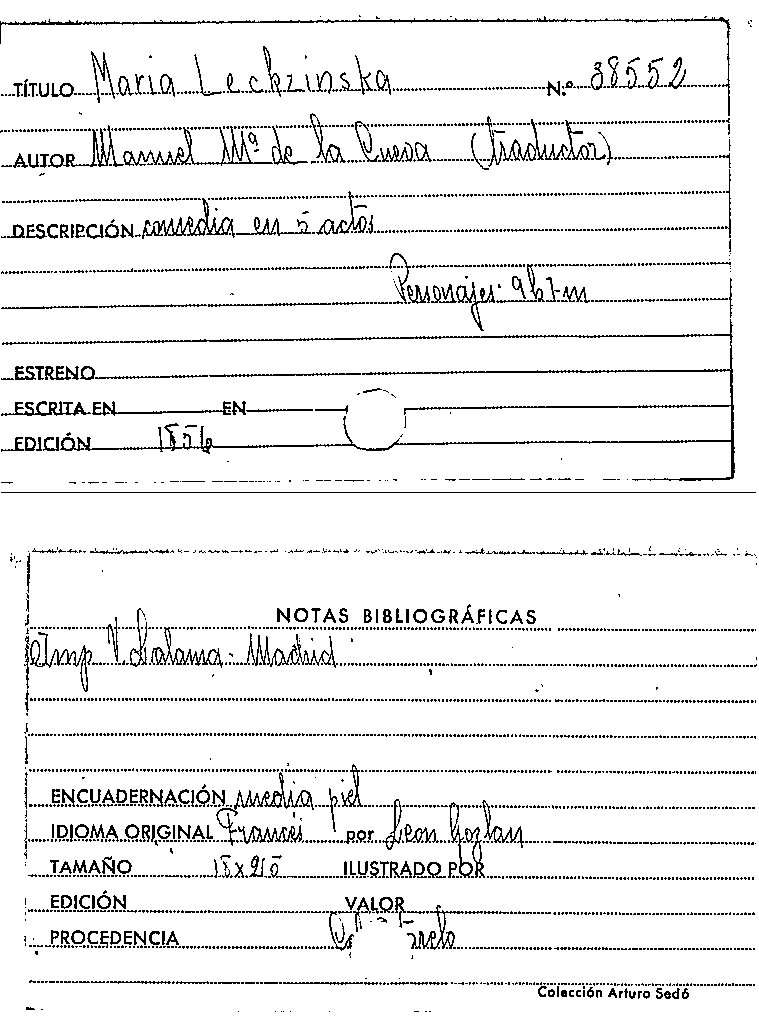 TÍTULO Maria Leckzinska N.º 38552
AUTOR Manuel Mª de la Cueva (traductor)
DESCRIPCIÓN comedia en 5 actos
Personajes: 9h 7m
ESTRENO
ESCRITA EN EN
EDICIÓN 1856
NOTAS BIBLIOGRÁFICAS
Imp V. Lalama - Madrid
ENCUADERNACIÓN media piel
IDIOMA ORIGINAL Francés por Leon Gozlan
TAMAÑO ILUSTRADO POR
EDICIÓN VALOR
PROCEDENCIA
Colección Arturo Sedó